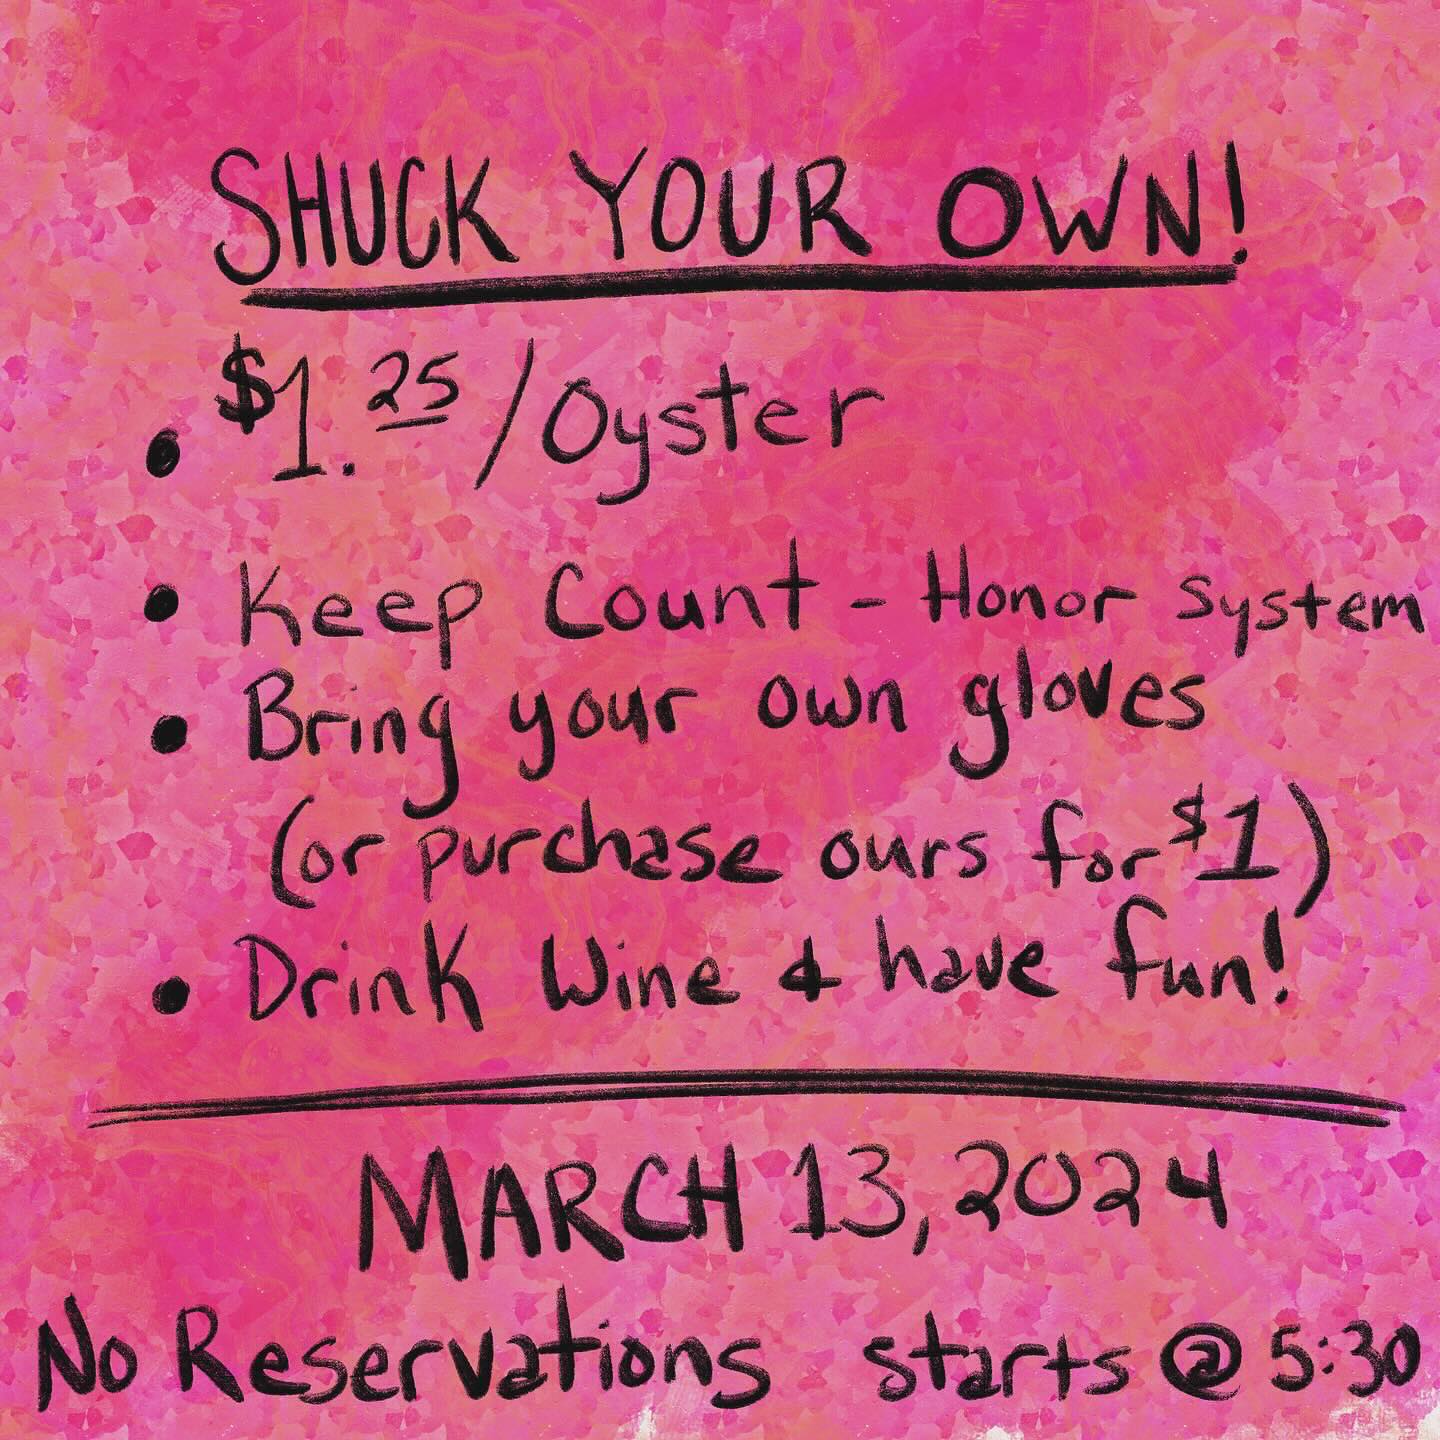 SHUCK YOUR OWN!
• $1.25/Oyster
• Keep Count - Honor System
• Bring your own gloves
(or purchase ours for $1)
• Drink Wine & have fun!
MARCH 13, 2024
No Reservations starts @ 5:30